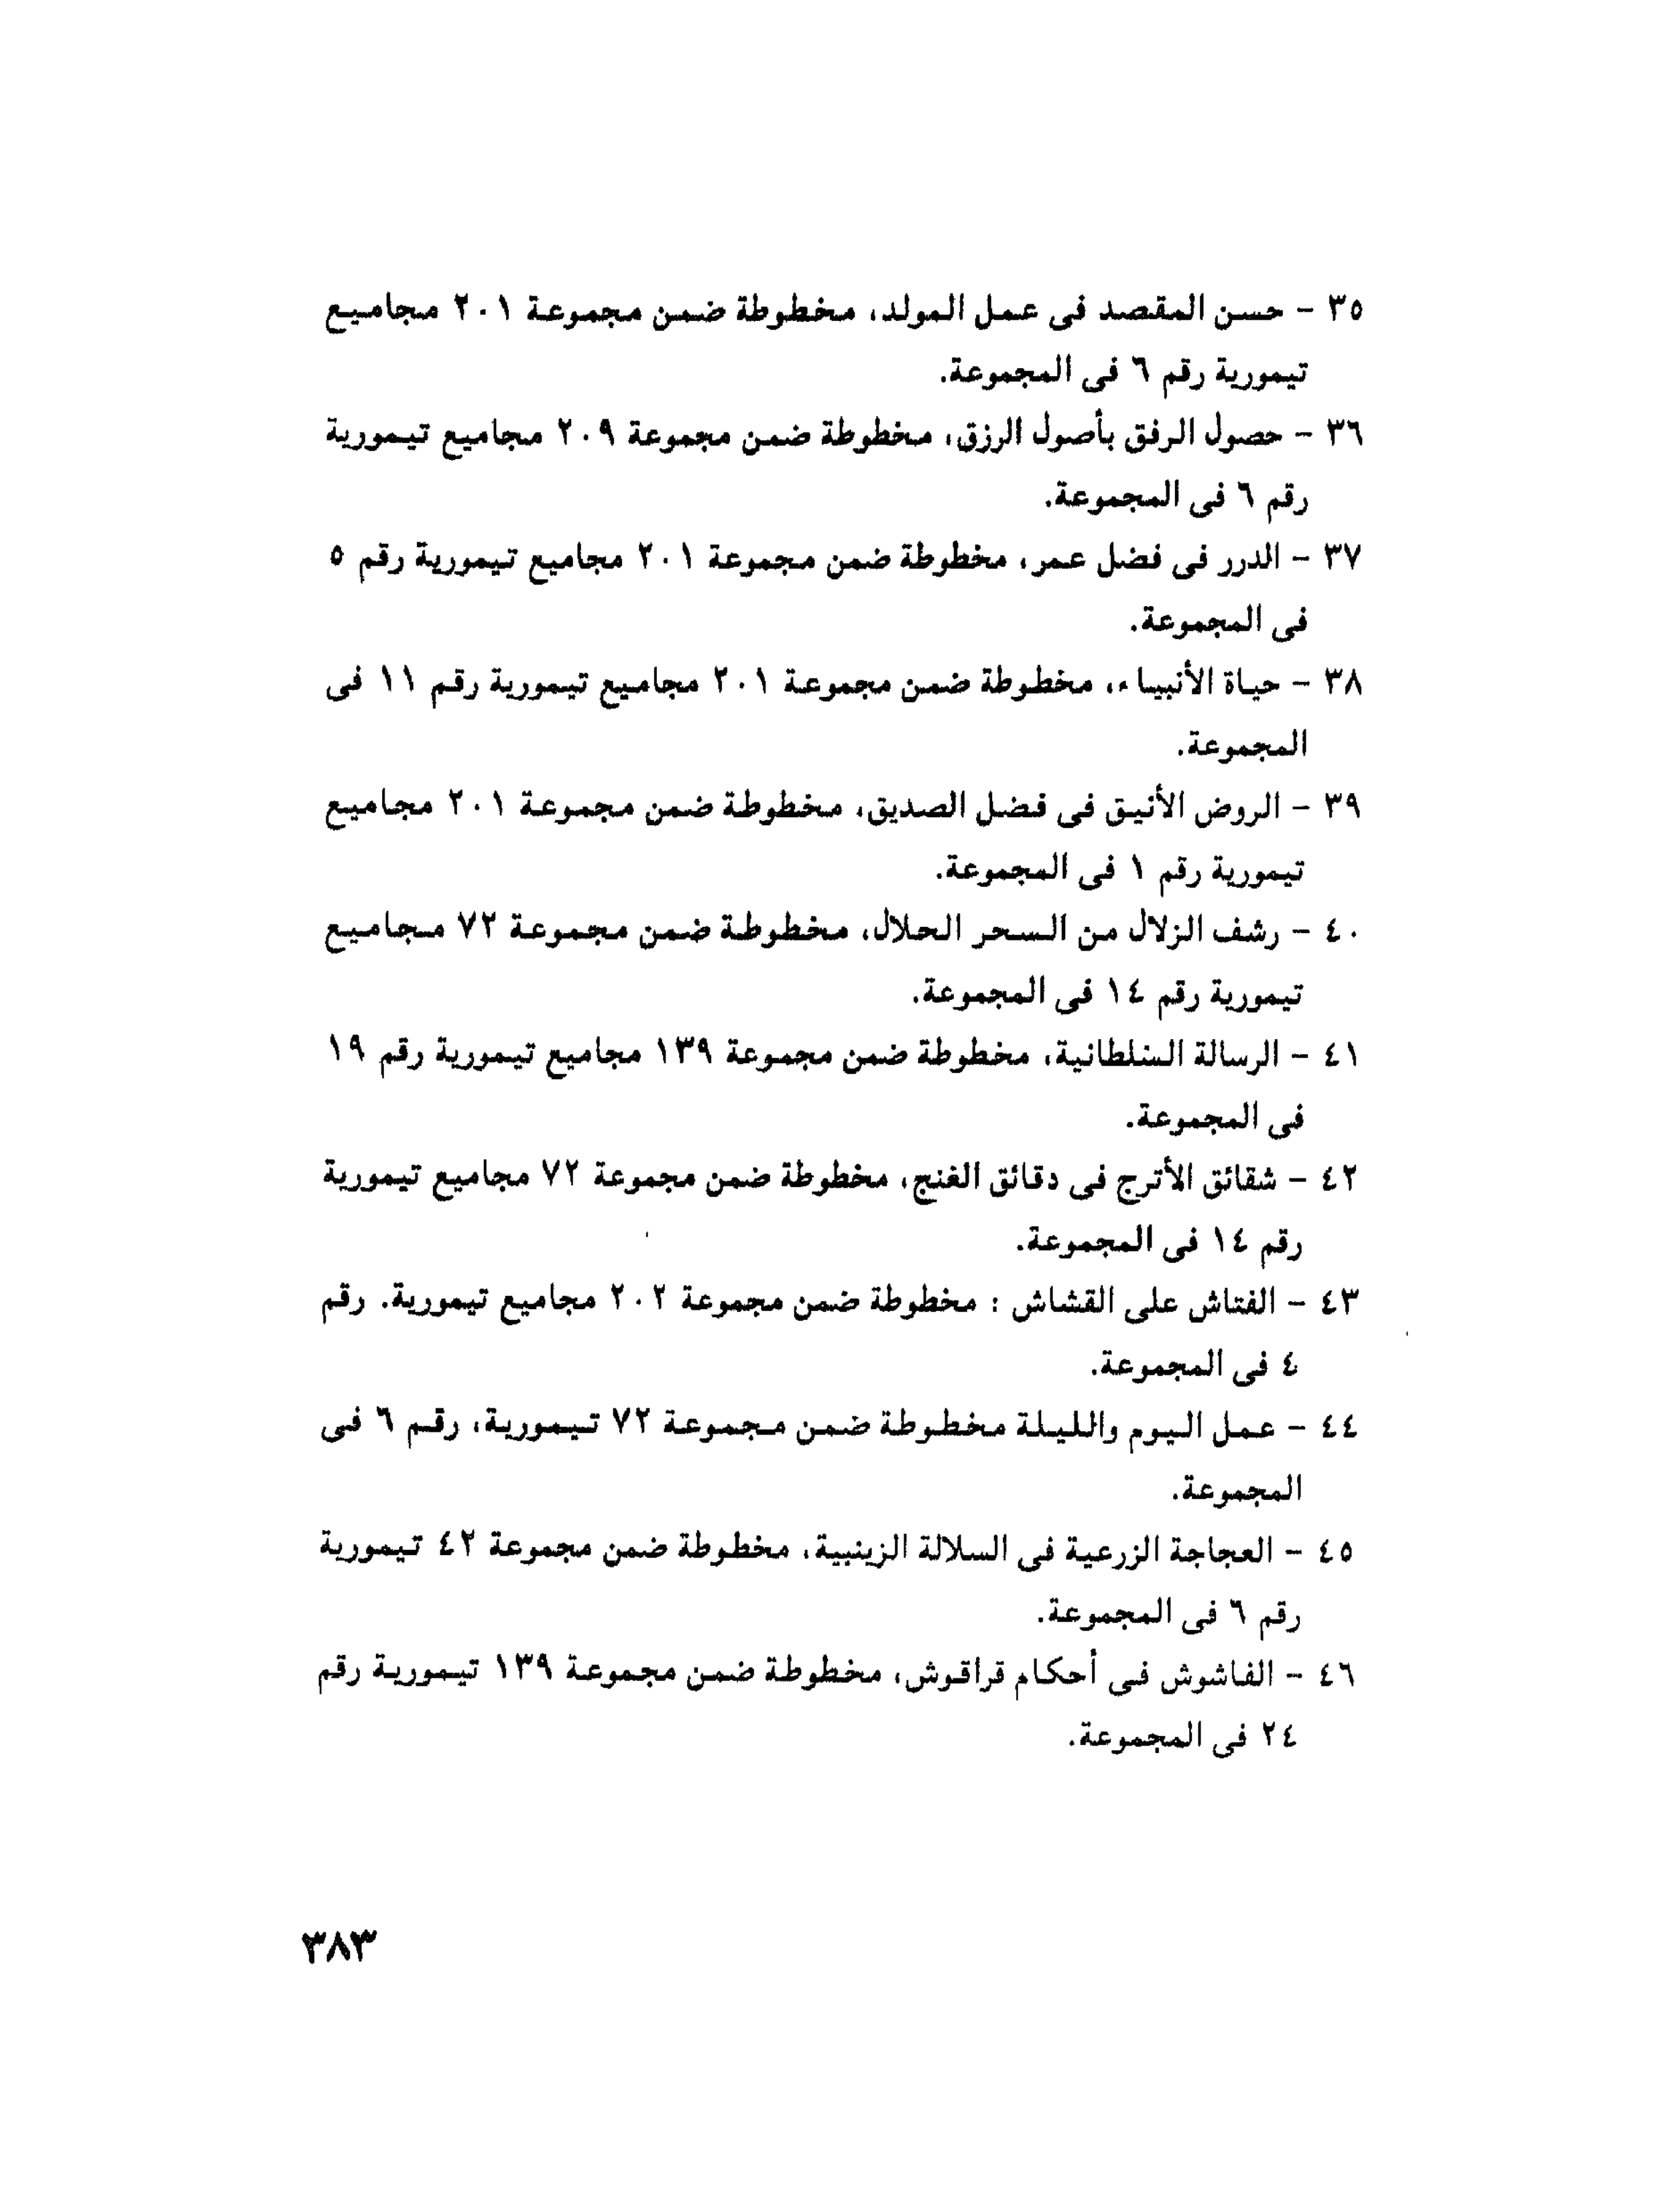 ٣٥ - حسن المقصد فى عمل المولد، مخطوطة ضمن مجموعة ٢٠١ مجاميع
تيمورية رقم ٦ فى المجموعة.
٣٦ - حصول الرفق بأصول الرزق، مخطوطة ضمن مجموعة ٢٠٩ مجاميع تيمورية
رقم ٦ فى المجموعة.
٣٧ - الدرر فى فضل عمر، مخطوطة ضمن مجموعة ٢٠١ مجاميع تيمورية رقم ٥
فى المجموعة.
٣٨ - حياة الأنبياء، مخطوطة ضمن مجموعة ٢٠١ مجاميع تيمورية رقم ١١ فى
المجموعة.
٣٩ - الروض الأنيق فى فضل الصديق، مخطوطة ضمن مجموعة ٢٠١ مجاميع
تيمورية رقم ١ فى المجموعة.
٤٠ - رشف الزلال من السحر الحلال، مخطوطة ضمن مجموعة ٧٢ مجاميع
تيمورية رقم ١٤ فى المجموعة.
٤١ - الرسالة السلطانية، مخطوطة ضمن مجموعة ١٣٩ مجاميع تيمورية رقم ١٩
فى المجموعة.
٤٢ - شقائق الأترج فى دقائق الغنج، مخطوطة ضمن مجموعة ٧٢ مجاميع تيمورية
رقم ١٤ فى المجموعة.
٤٣ - الفتاش على القشاش : مخطوطة ضمن مجموعة ٢٠٢ مجاميع تيمورية. رقم
٤ فى المجموعة.
٤٤ - عمل اليوم والليلة مخطوطة ضمن مجموعة ٧٢ تيمورية، رقم ٦ فى
المجموعة.
٤٥ - العجاجة الزرعية فى السلالة الزينبية، مخطوطة ضمن مجموعة ٤٢ تيمورية
رقم ٦ فى المجموعة.
٤٦ - الفاشوش فى أحكام قراقوش، مخطوطة ضمن مجموعة ١٣٩ تيمورية رقم
٢٤ فى المجموعة.
٣٨٣